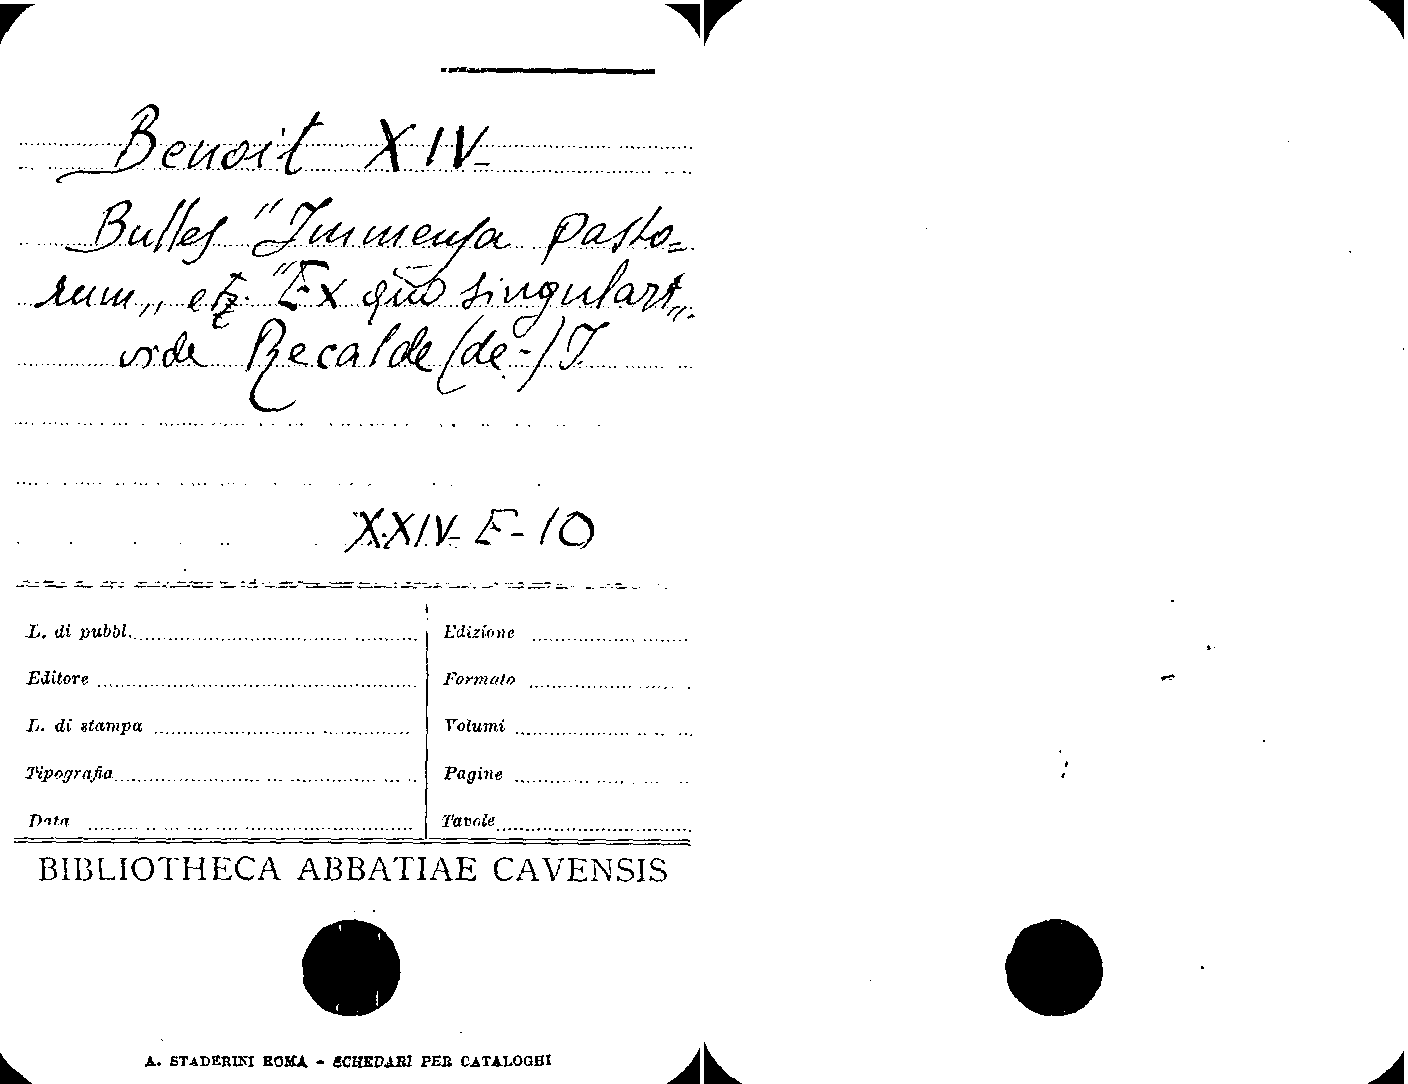 Benoit XIV-
Bulles "Immensa pasto=
rum,, etz. "Ex quo singulari,,.
vide Recalde (de-) I.
XXIV- E- 10
L. di pubbl.
Edizione
Editore
Formato
L. di stampa
Volumi
Tipografia
Pagine
Data
Tavole
BIBLIOTHECA ABBATIAE CAVENSIS
A. STADERINI ROMA - SCHEDARI PER CATALOGHI